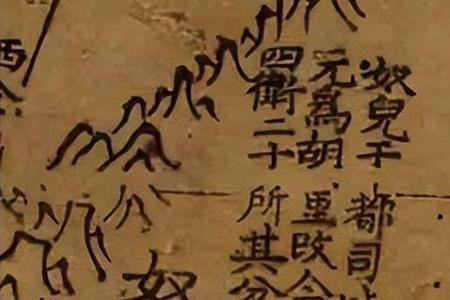 奴兒干都司
元為胡里改今
四衛二十所其分
奴
西